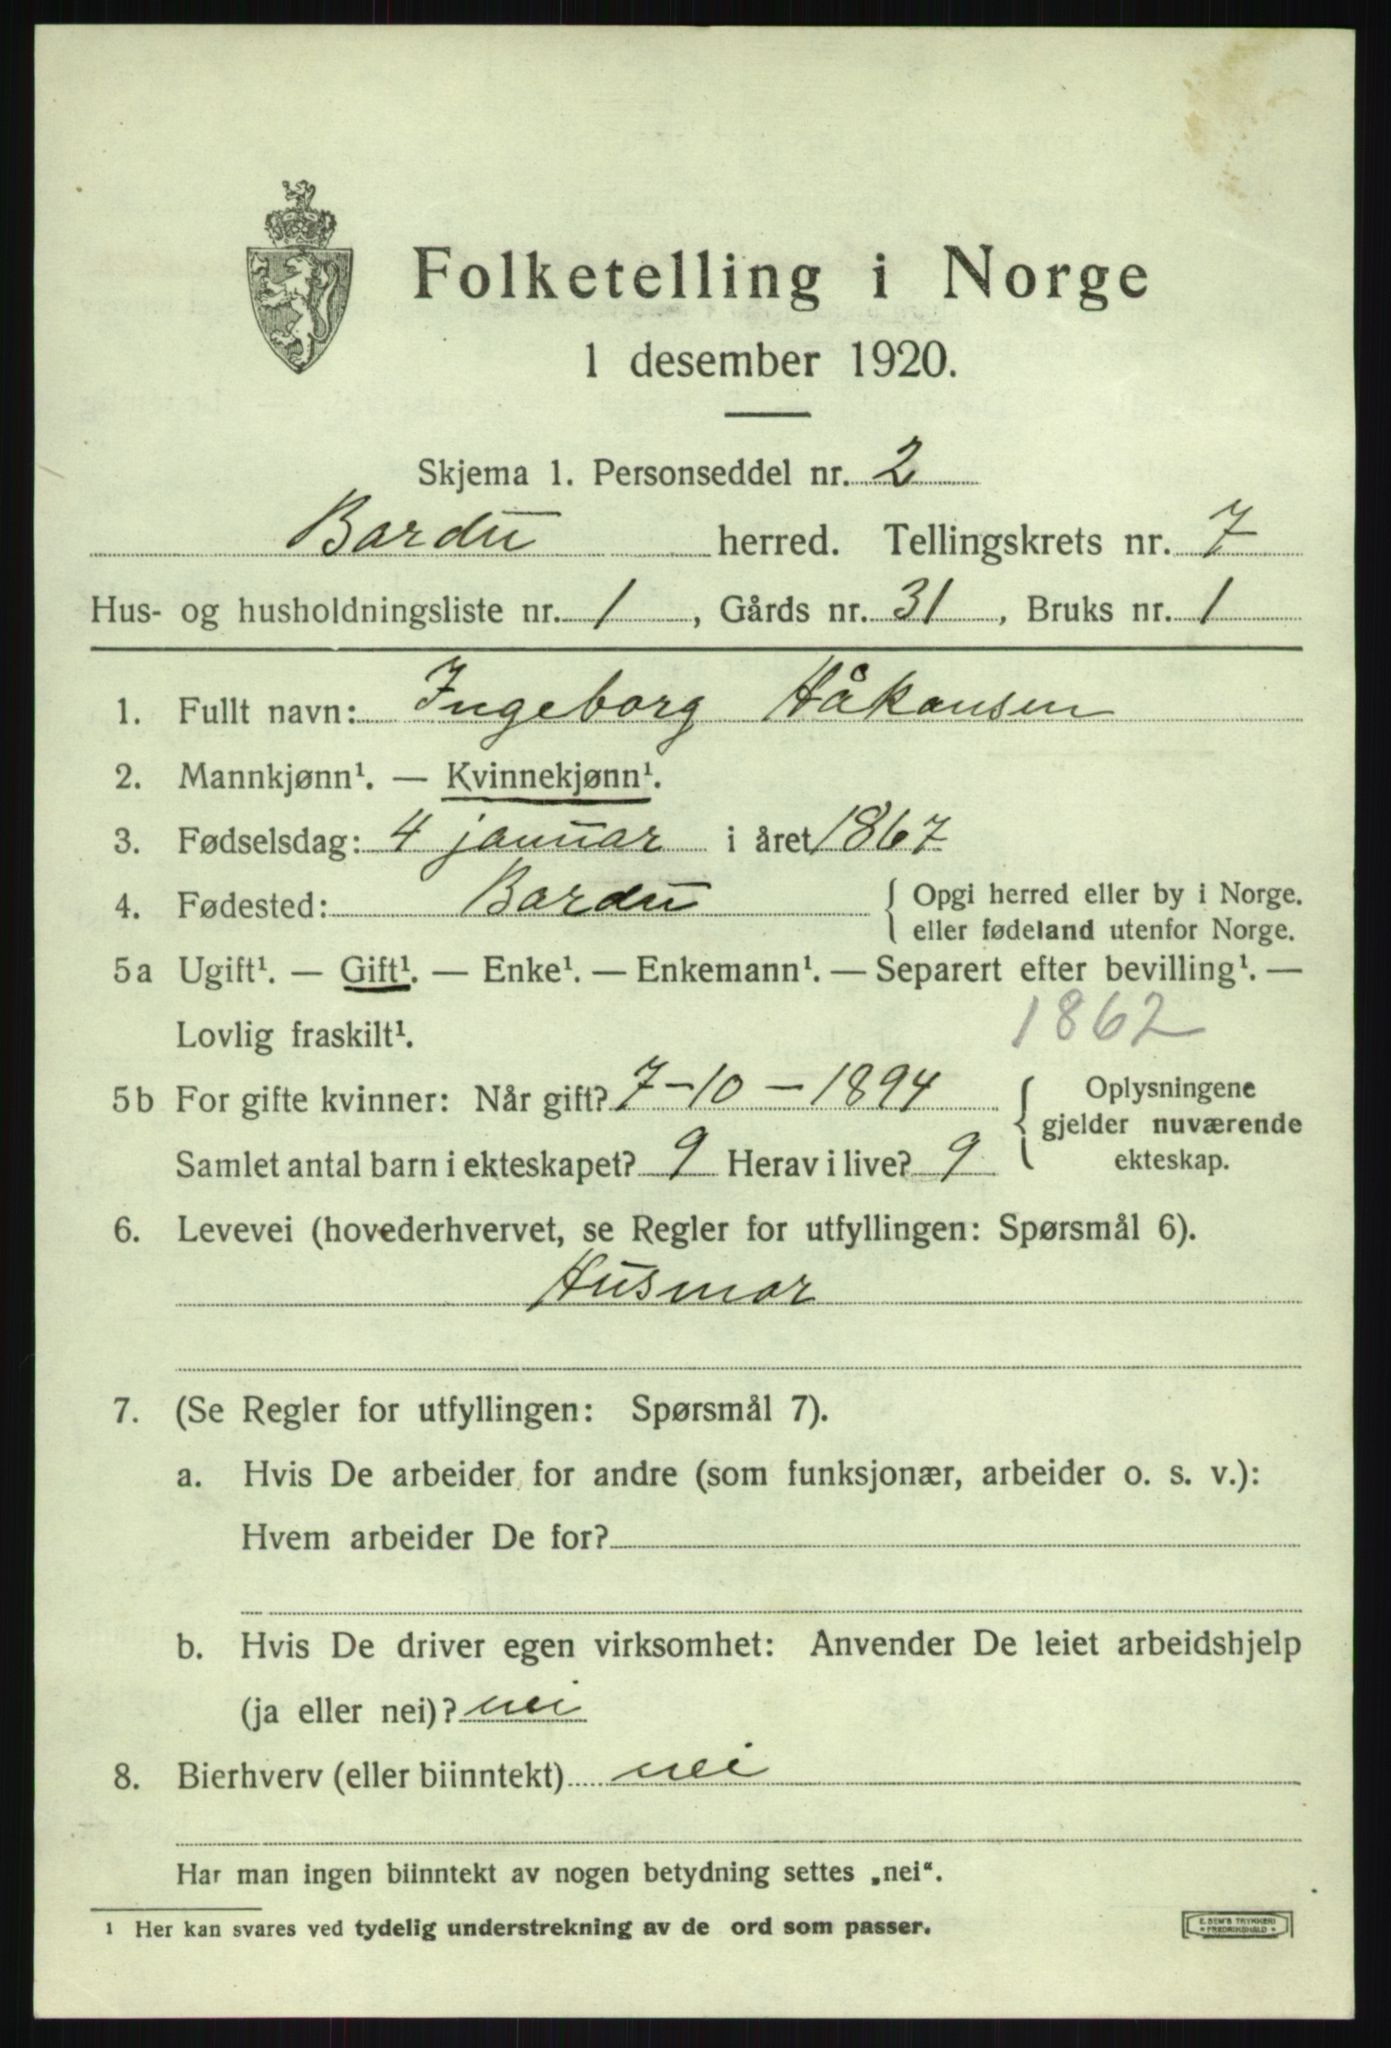 Folketelling i Norge
1 desember 1920.
Skjema 1. Personseddel nr. 2
Bardu herred. Tellingskrets nr. 7
Hus- og husholdningsliste nr. 1, Gårds nr. 31, Bruks nr. 1
1. Fullt navn: Ingeborg Håkansen
2. Mannkjønn¹. — Kvinnekjønn¹.
3. Fødselsdag: 4 januar i året 1867
4. Fødested: Bardu { Opgi herred eller by i Norge.
eller fødeland utenfor Norge.
5a Ugift¹. — Gift¹. — Enke¹. — Enkemann¹. — Separert efter bevilling¹. —
Lovlig fraskilt¹. 1862
5b For gifte kvinner: Når gift? 7-10-1894 { Oplysningene
gjelder nuværende
Samlet antal barn i ekteskapet? 9 Herav i live? 9 ekteskap.
6. Levevei (hovederhvervet, se Regler for utfyllingen: Spørsmål 6).
Husmor
7. (Se Regler for utfyllingen: Spørsmål 7).
a. Hvis De arbeider for andre (som funksjonær, arbeider o. s. v.):
Hvem arbeider De for?
b. Hvis De driver egen virksomhet: Anvender De leiet arbeidshjelp
(ja eller nei)? nei
8. Bierhverv (eller biinntekt) nei
Har man ingen biinntekt av nogen betydning settes „nei“.
¹ Her kan svares ved tydelig understrekning av de ord som passer.
E. SEM'S TRYKKERI
* FREDRIKSHALD *